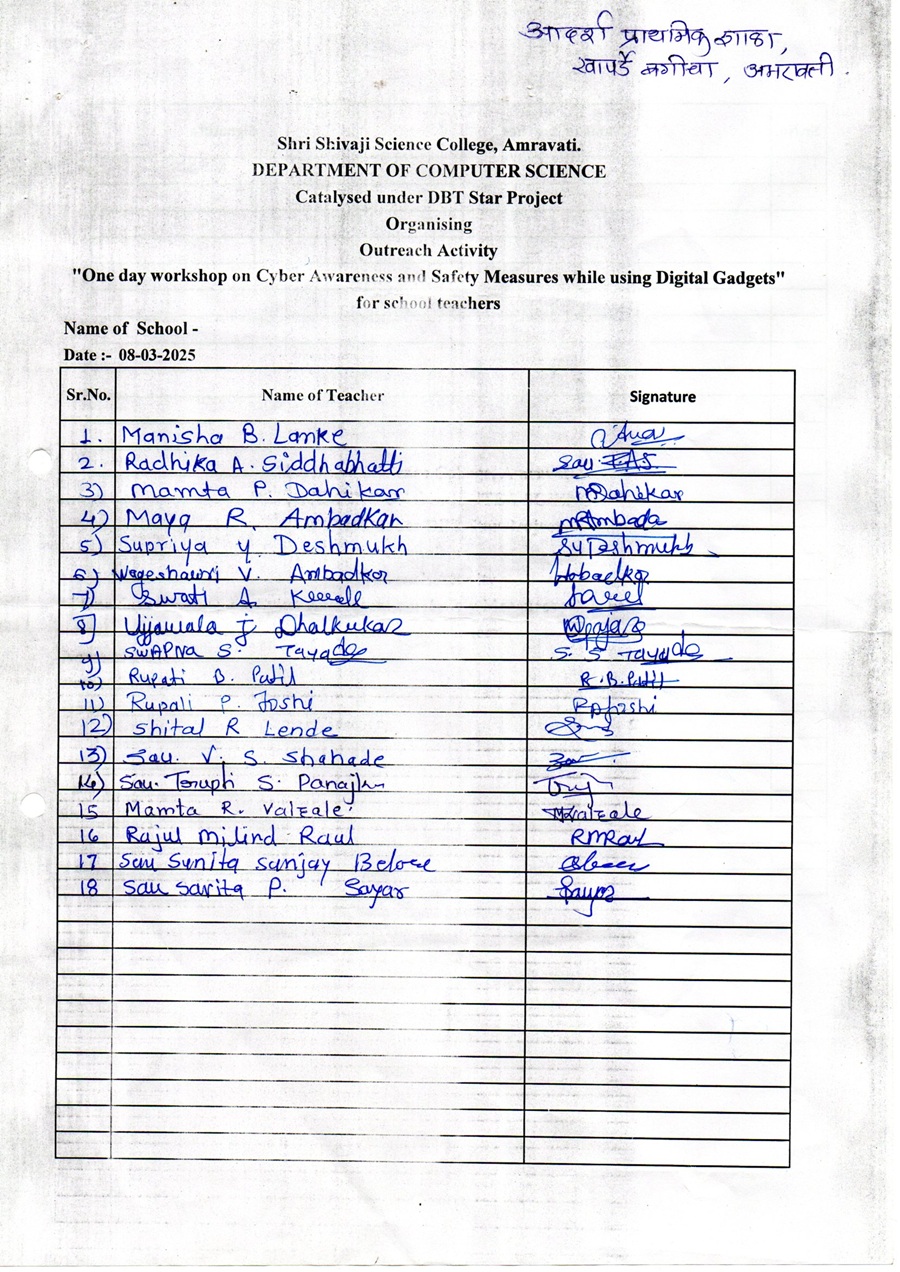 आदर्श प्राथमिक शाळा,
खापर्डे बगीचा, अमरावती.
Shri Shivaji Science College, Amravati.
DEPARTMENT OF COMPUTER SCIENCE
Catalysed under DBT Star Project
Organising
Outreach Activity
"One day workshop on Cyber Awareness and Safety Measures while using Digital Gadgets"
for school teachers
Name of School -
Date :- 08-03-2025
Sr.No. Name of Teacher Signature
1. Manisha B. Lanke
2. Radhika A. Siddhabhatti
3) Mamta P. Dahikar MDahikar
4) Maya R. Ambadkar MAmbada
5) Supriya y Deshmukh SYDeshmukh
6) Wageshawri V. Ambadkar
7) Swati A.
8] Ujjawala J Dhalkukar
9) SWAPNA S. Tayade S. S Tayade
10) Rupali B. Patil R.B.Patil
11) Rupali P. Joshi RPJoshi
12) Shital R Lende
13) Sau. V. S. Shahade
14) Sau. S.
15 Mamta R. Valzale
16 Rajul Milind Raul RMRaul
17 Sau Sunita Sanjay Belore
18 Sau Sarita P. Sayar